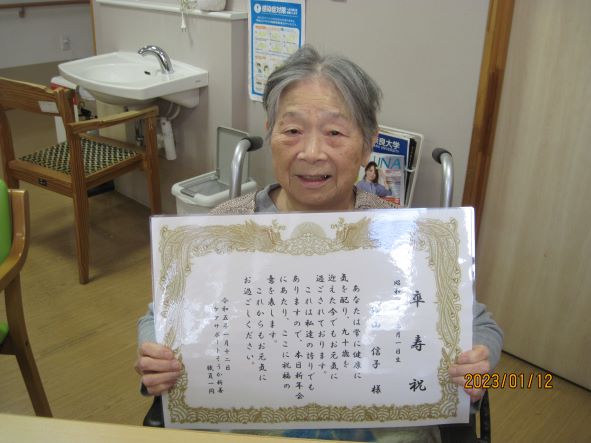 感染症対策
良大学
UNA
卒寿祝
昭和 月一日生
山 信子 様
あなたは常に健康に
気を配り、九十歳を
迎えた今でもお元気に
過ごされております。
これは私達の誇りでも
ありますので、本日新年会
にあたり、ここに祝福の
意を表します。
これからもお元気に
お過ごしください。
令和五年一月十二日
ケアサポートそうか新善
職員一同
2023/01/12